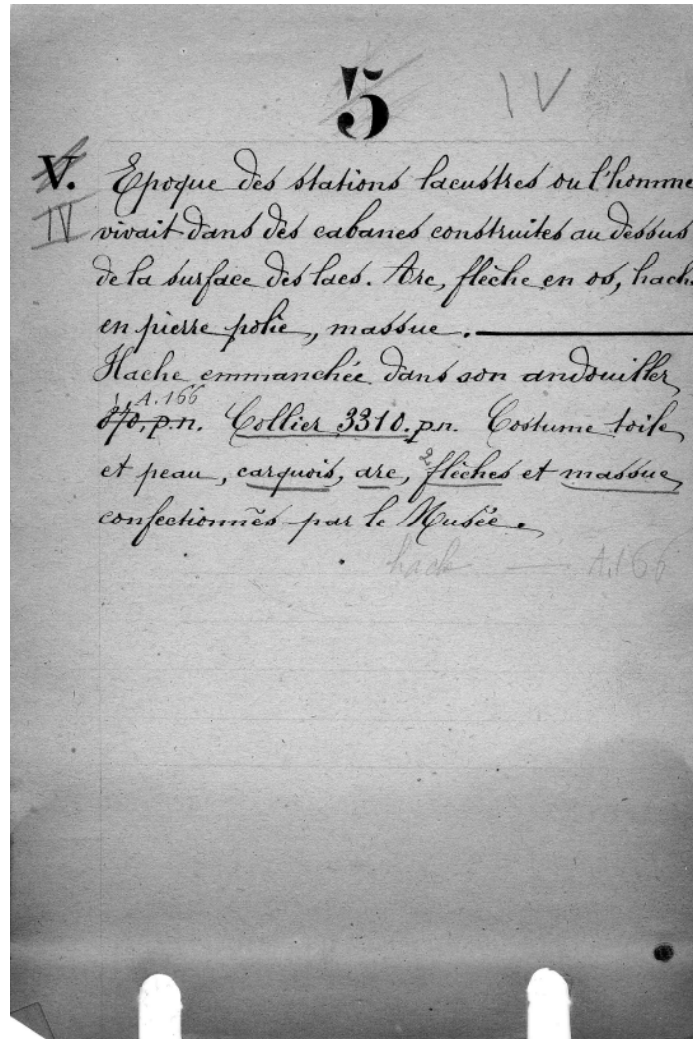 5 IV
V. Epoque des stations lacustres ou l'homme
IV vivait dans des cabanes construites au dessus
de la surface des lacs. Arc, flèche en os, hache
en pierre polie, massue.
Hache emmanchée dans son andouiller
A.166
p.n. Collier 3310. p.n. Costume toile
et peau, carquois, arc, 2 flèches et massue
confectionnés par le Musée.
hache — A.166